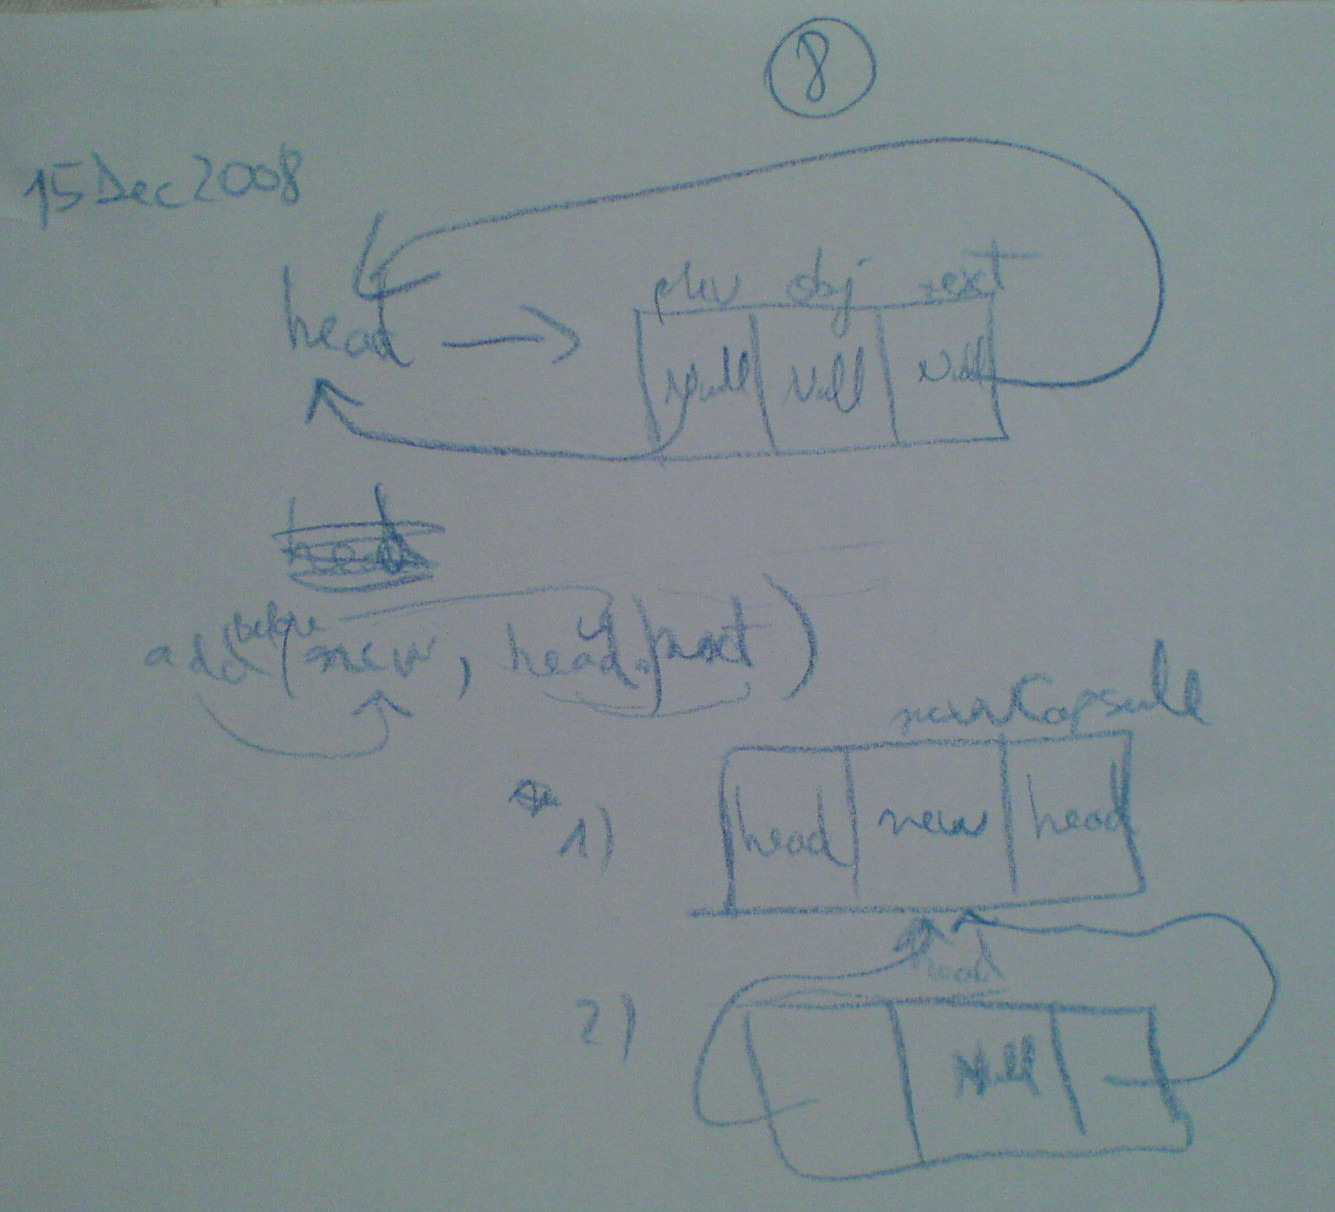 8
15Dec2008
prev obj next
head
Null Null Null
head
before
add(new, head.next)
newCapsule
1) head new head
head
2) Null